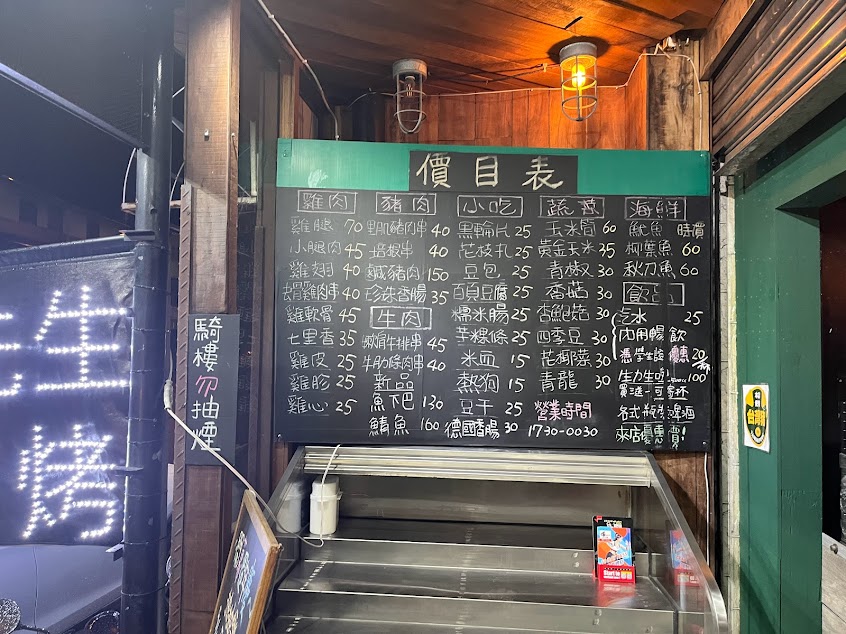 價目表
雞肉
雞腿 70
小腿肉 45
雞翅 40
去骨雞肉串 40
雞軟骨 45
七里香 35
雞皮 25
雞胗 25
雞心 25
豬肉
里肌豬肉串 40
培根串 40
鹹豬肉 150
珍珠香腸 35
牛肉
板肩牛排串 45
牛肋條肉串 40
新品
魚下巴 130
鯖魚 160
小吃
黑輪片 25
花枝丸 25
豆包 25
百頁豆腐 25
糯米腸 25
芋粿條 25
米血 15
熱狗 15
豆干 25
德國香腸 30
蔬菜
玉米筍 60
黃金玉米 35
青椒 30
香菇 30
杏鮑菇 30
四季豆 30
花椰菜 30
青龍 30
營業時間
1730-0030
海鮮
魷魚 時價
柳葉魚 60
秋刀魚 60
飲品
汽水 25
內用暢飲
憑學生證 優惠 20
生力生啤 100
買進一可
各式瓶裝啤酒
來店優惠價!
騎樓勿抽煙
生
烤